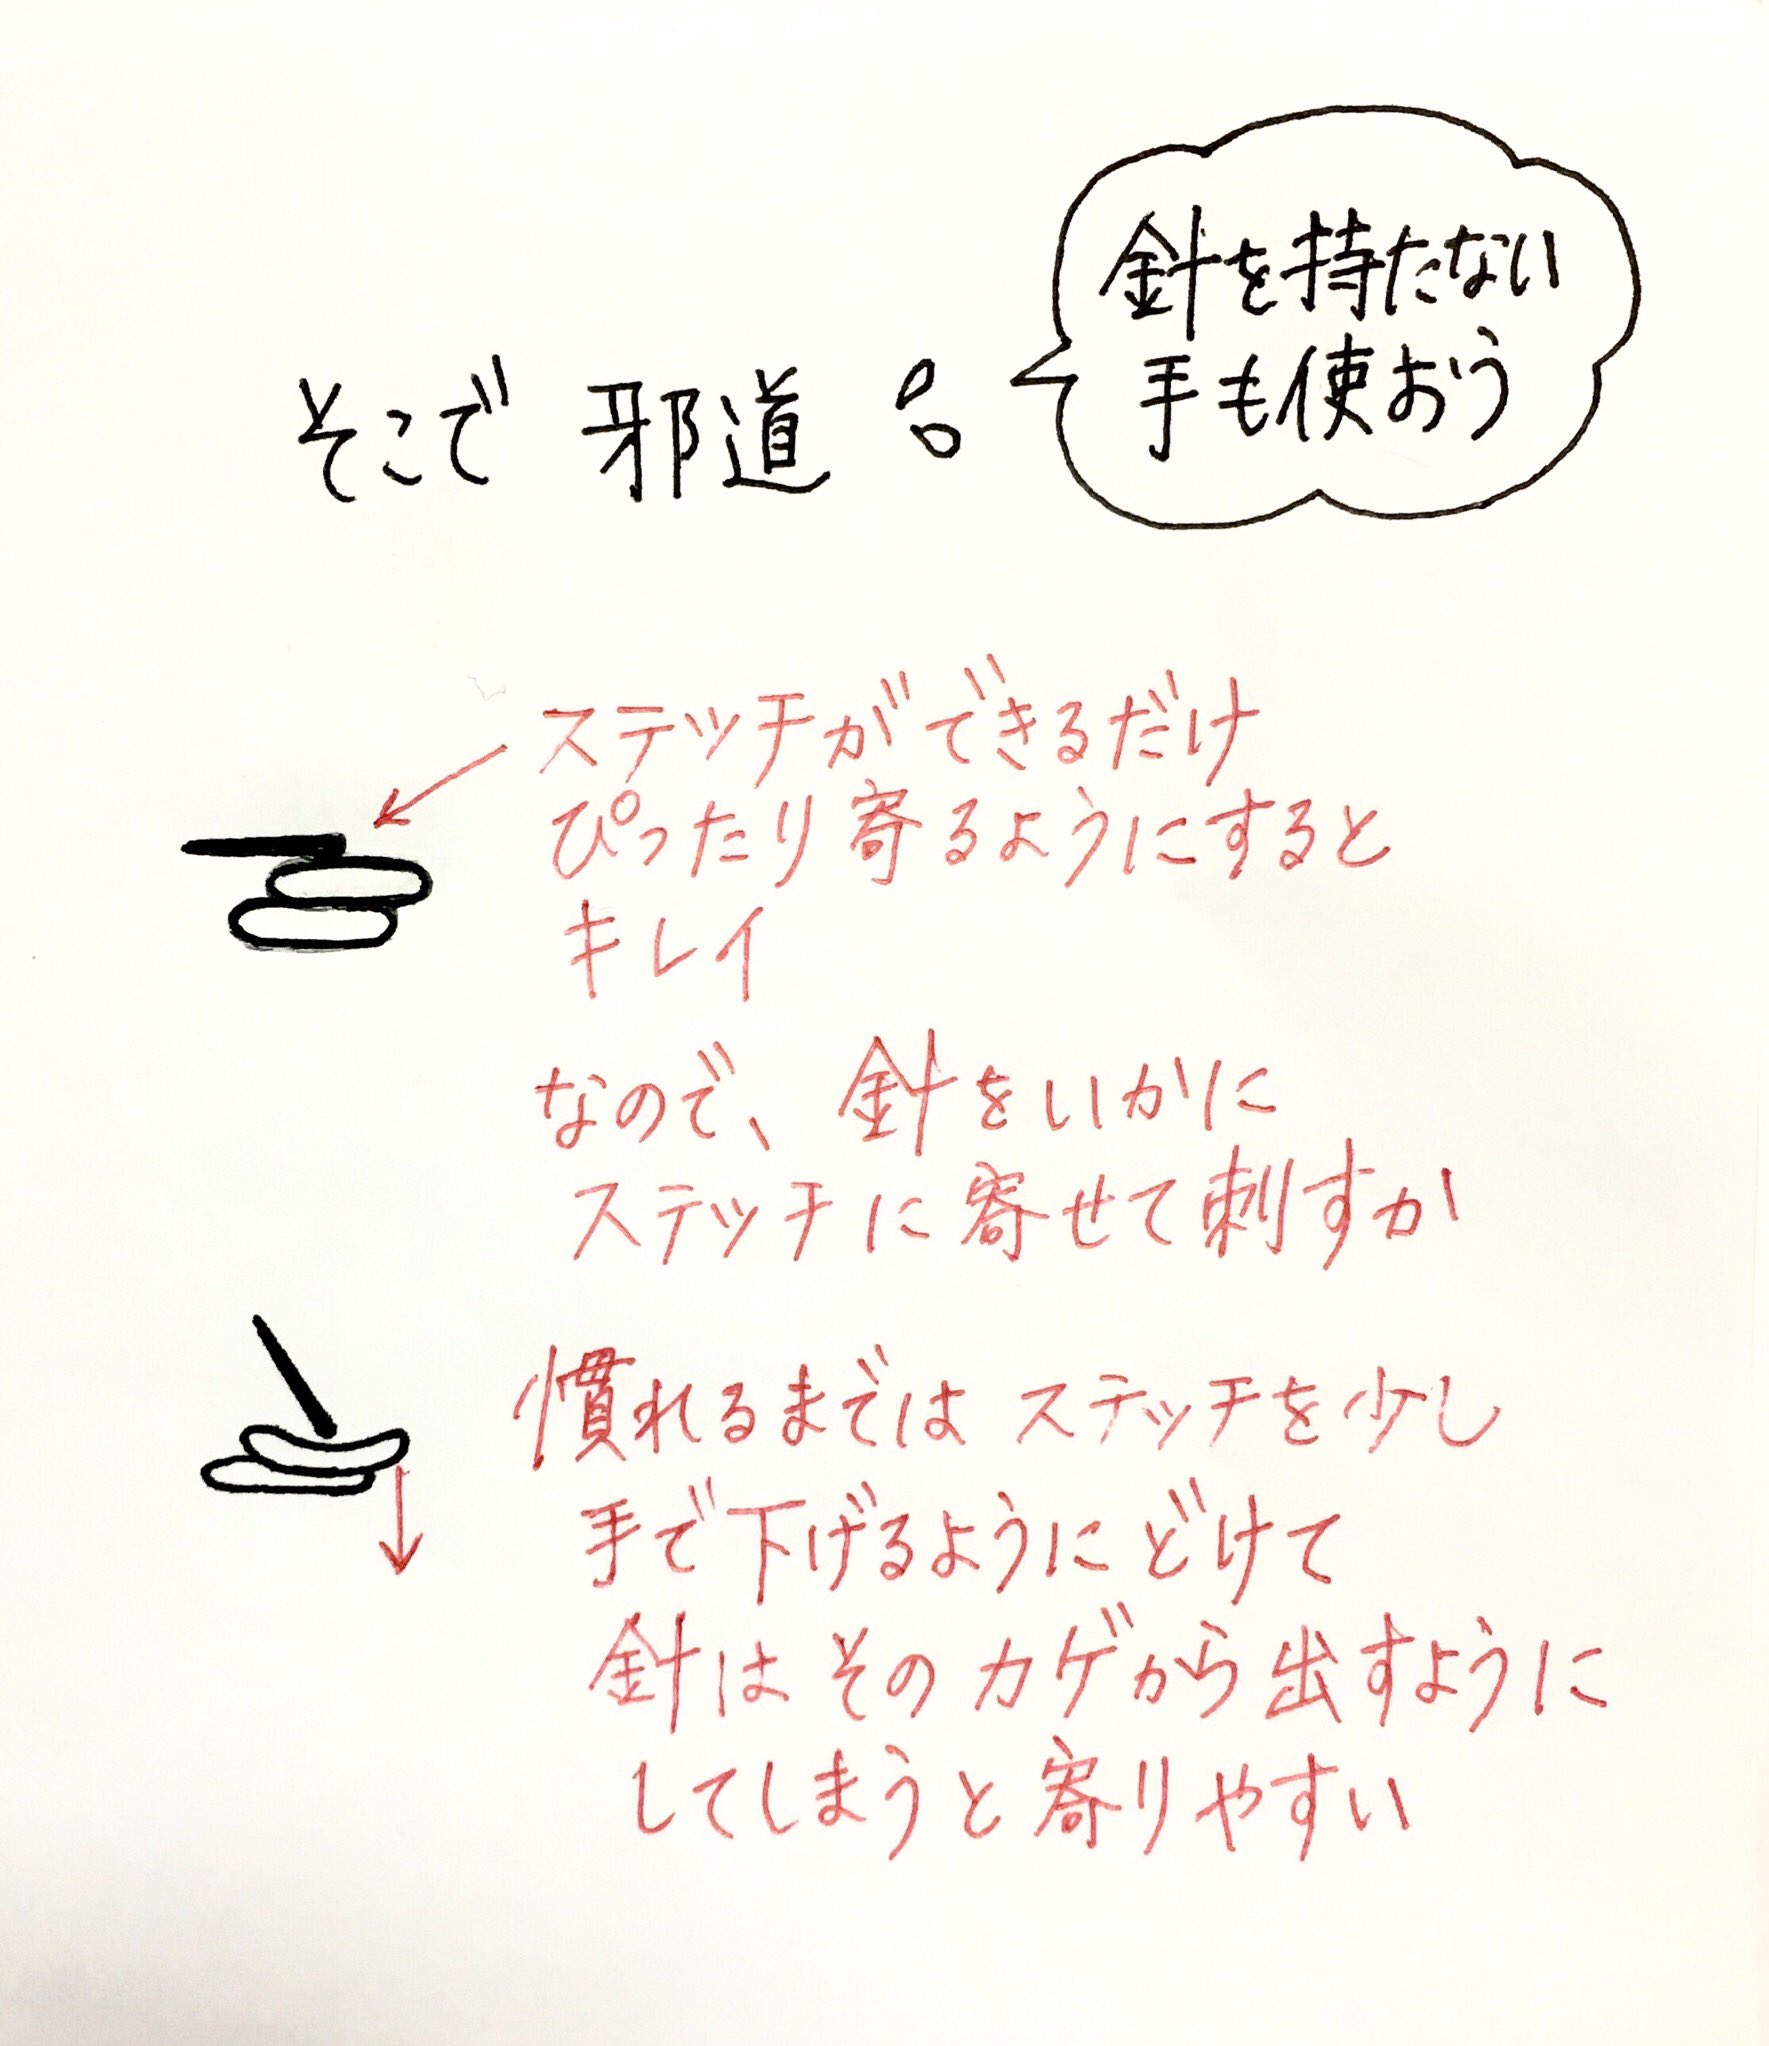 そこで 邪道
針を持たない
手も使おう
ステッチができるだけ
ぴったり寄るようにすると
キレイ
なので、針をいかに
ステッチに寄せて刺すか
慣れるまでは ステッチを少し
手で下げるように どけて
針は そのカゲから 出すように
してしまうと 寄りやすい